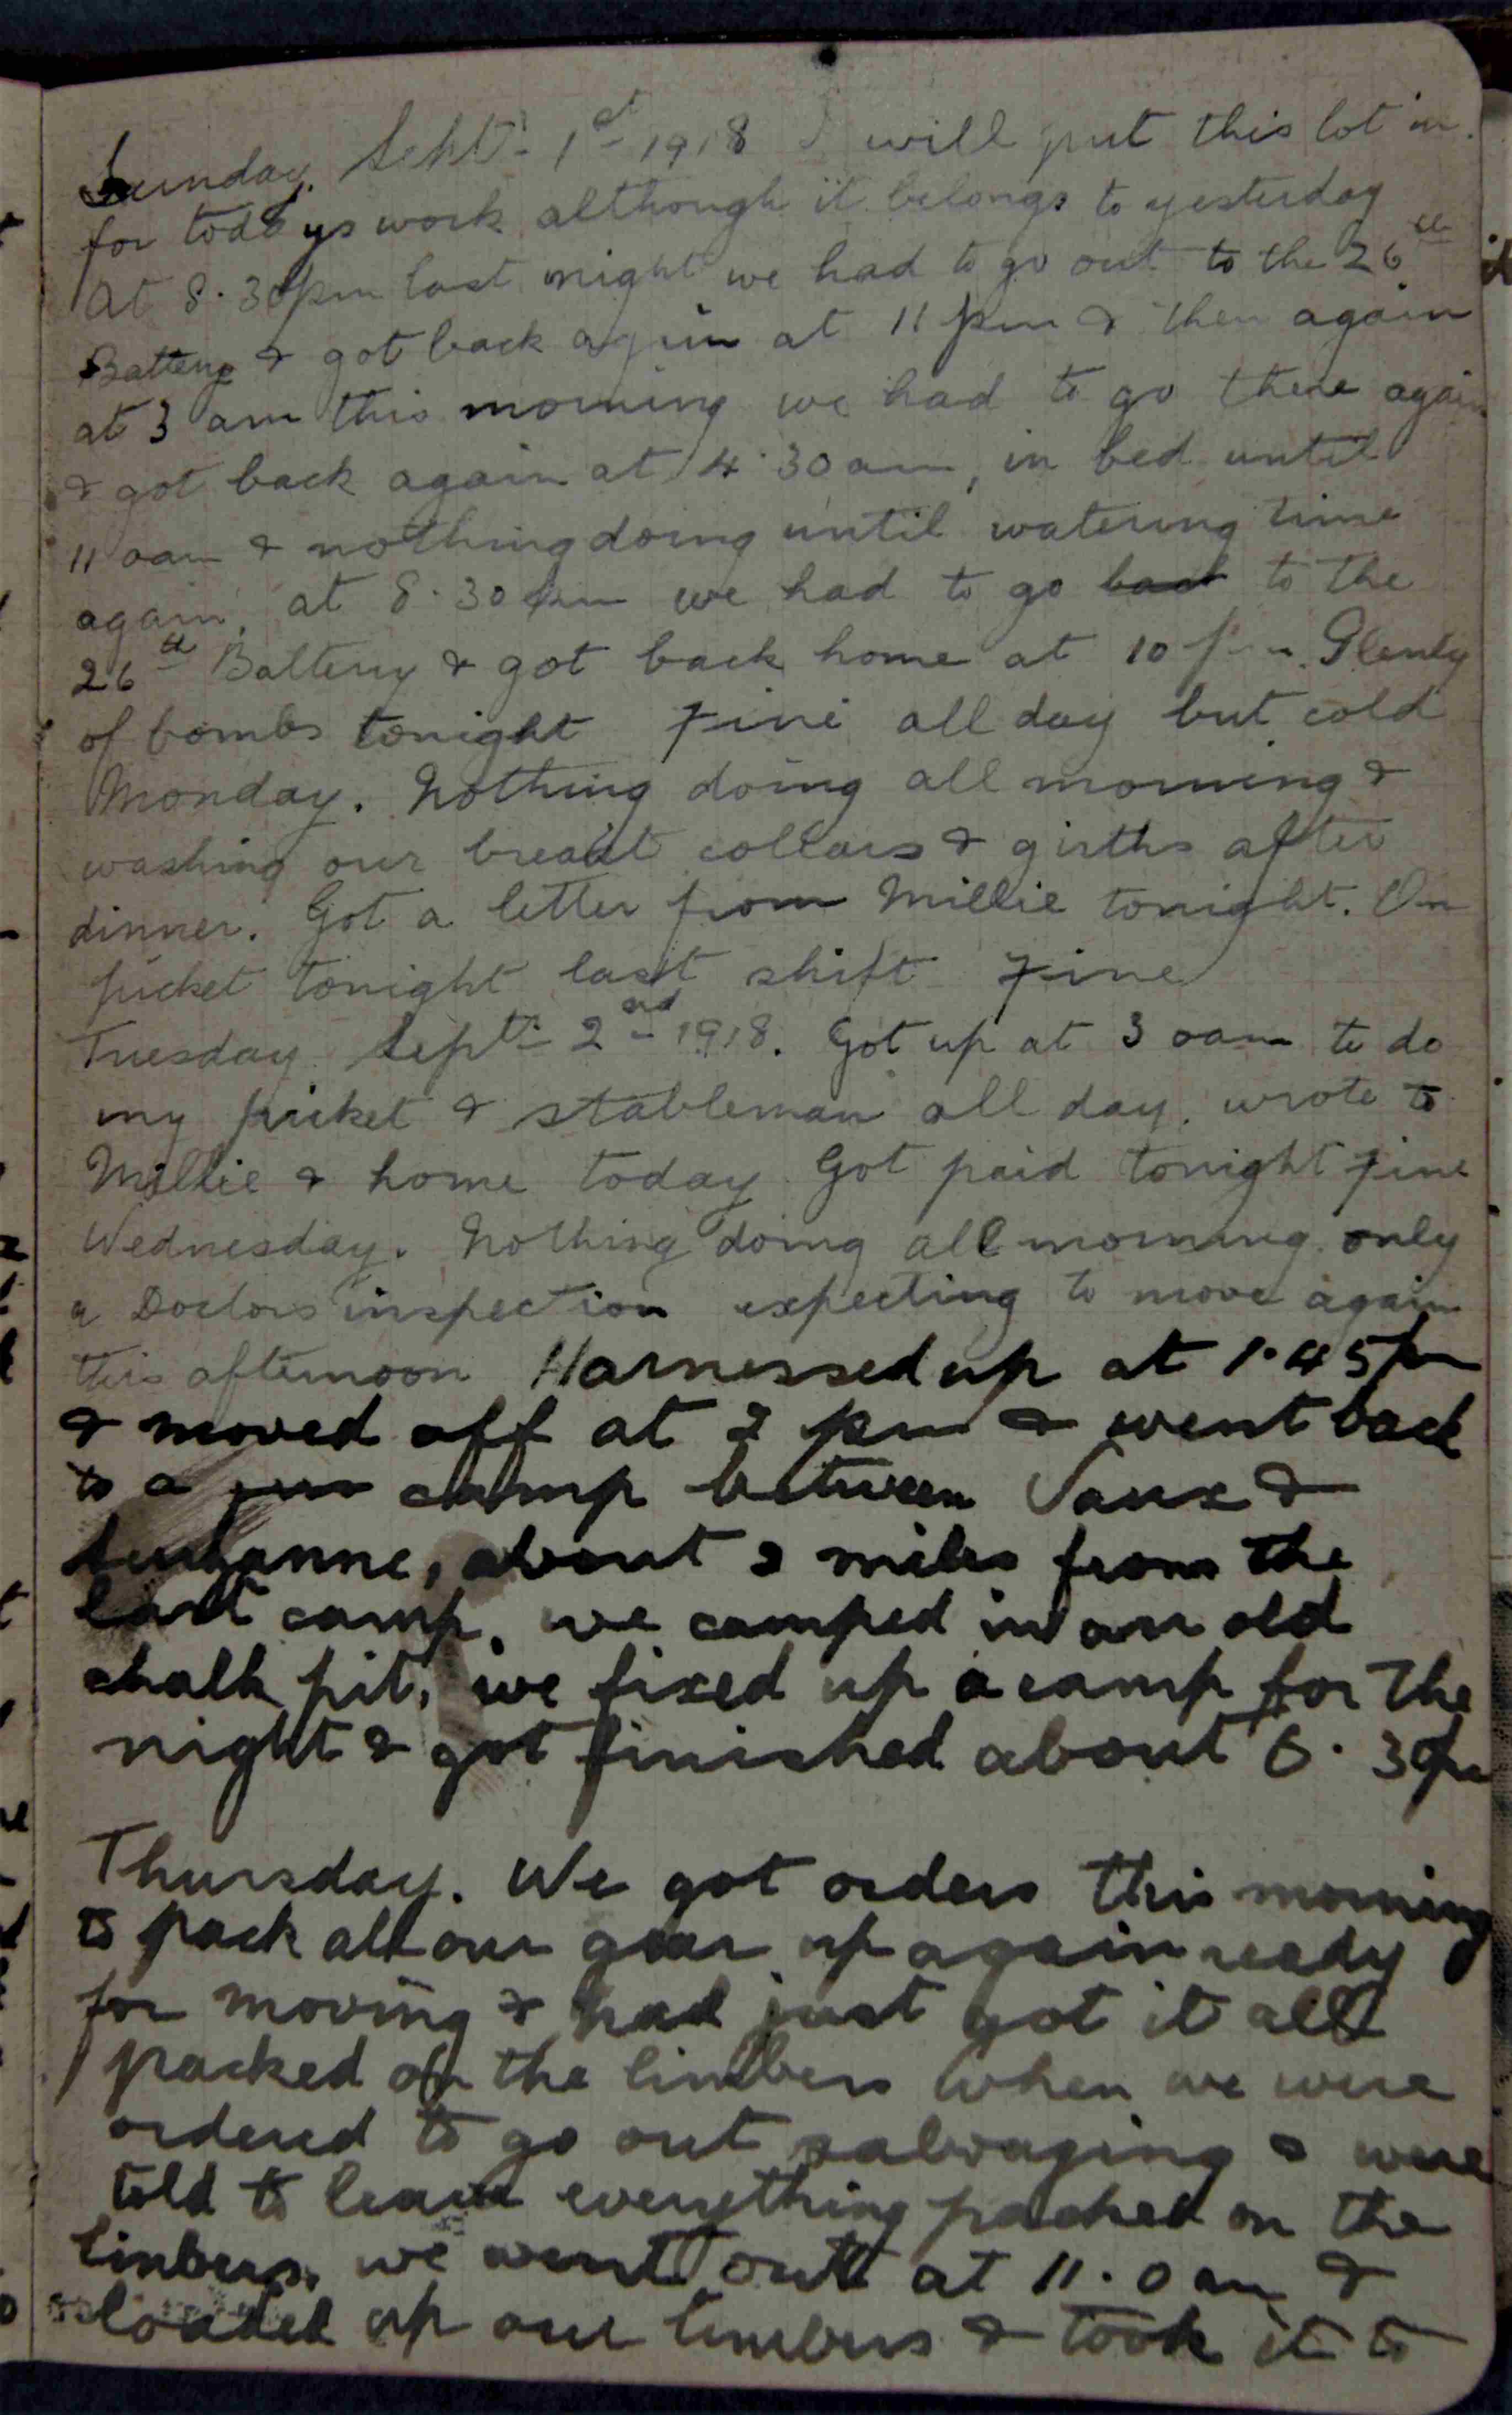 Sunday. Sept: 1st 1918 I will put this lot in.
for todays work although it belongs to yesterday
At 8.30pm last night we had to go out to the 26th
Battery & got back again at 11 pm & then again
at 3 am this morning we had to go there again
& got back again at 4.30 am, in bed until
11 oam & nothing doing until watering time
again. at 8.30pm we had to go back to the
26th Battery & got back home at 10 pm. Plenty
of bombs tonight Fine all day but cold
Monday. Nothing doing all morning &
washing our breast collars & girths after
dinner. Got a letter from Millie tonight. On
picket tonight last shift Fine
Tuesday Sept: 2nd 1918. Got up at 3 oam to do
my picket & stableman all day. wrote to
Millie & home today. Got paid tonight fine
Wednesday. Nothing doing all morning. only
a Doctors inspection expecting to move again
this afternoon Harnessed up at 1.45pm
& moved off at 2 pm & went back
to a camp between Vaux &
Suzanne, about 2 miles from the
last camp. we camped in an old
chalk pit, we fixed up a camp for the
night & got finished about 6.30pm
Thursday. We got orders this morning
to pack all our gear up again ready
for moving & had just got it all
packed on the limbers when we were
ordered to go out salvaging & were
told to leave everything packed on the
limbers. we went out at 11.0am &
loaded up our limbers & took it to